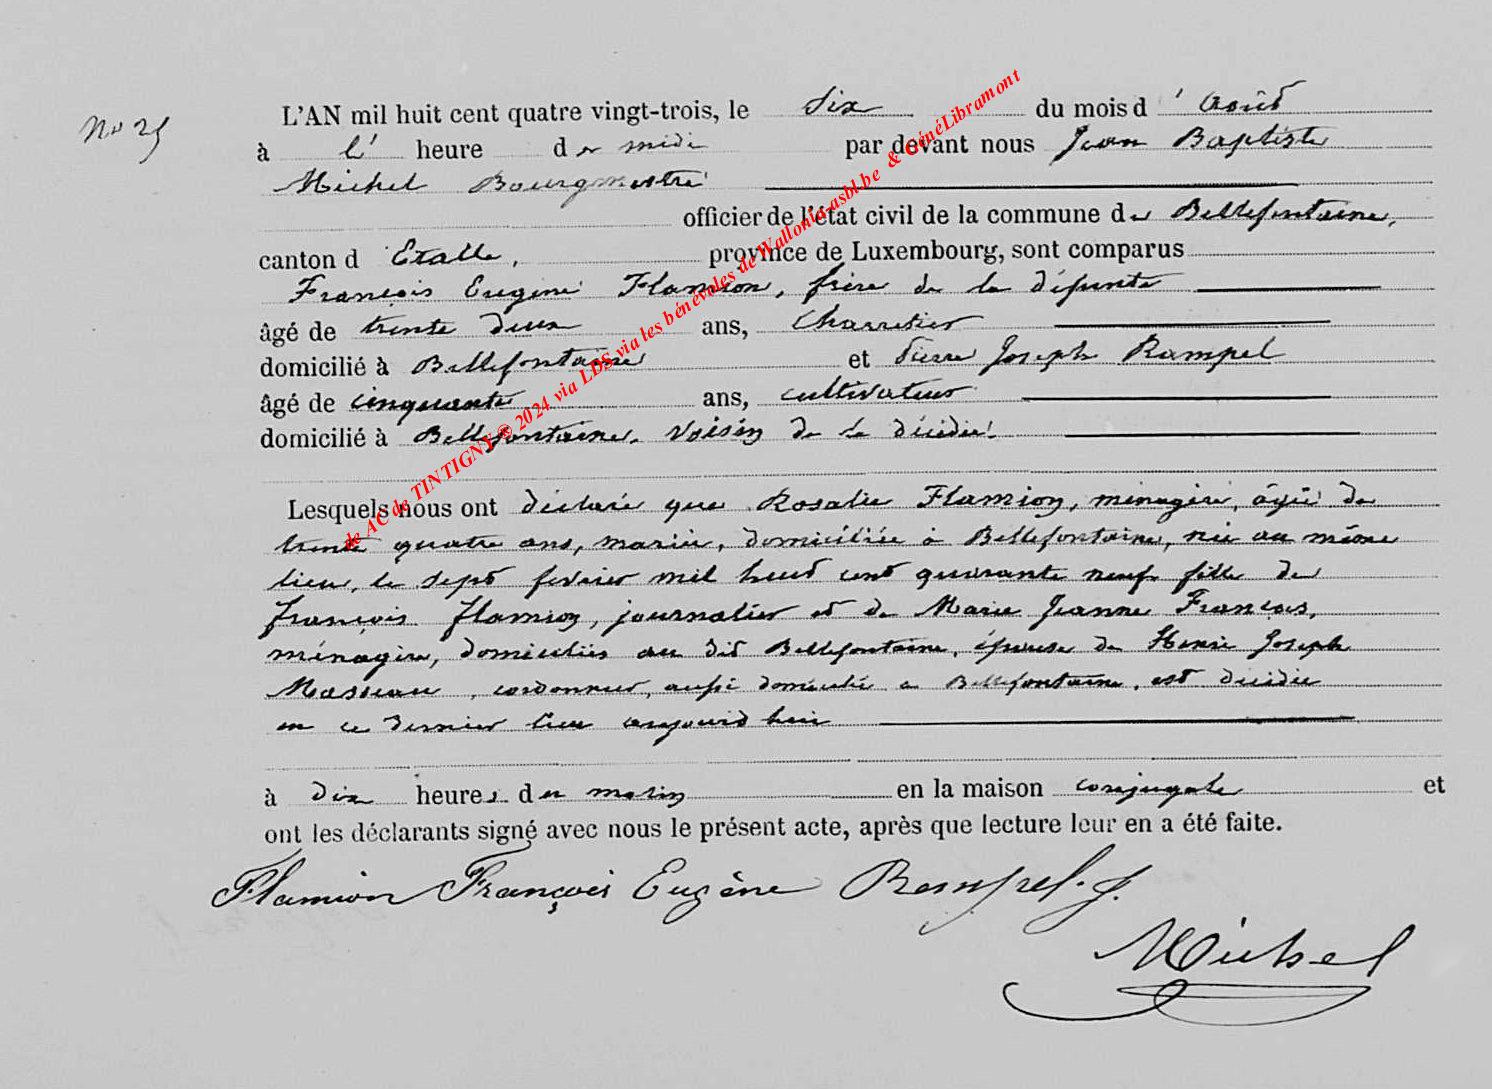 No 25
L'AN mil huit cent quatre vingt-trois, le six du mois d'août
à l' heure de midi par devant nous Jean Baptiste
Michel Bourgmestre
officier de l'état civil de la commune de Bellefontaine,
canton d'Etalle, province de Luxembourg, sont comparus
François Eugène Flamion, frère de la défunte
âgé de trente deux ans, charretier
domicilié à Bellefontaine et Pierre Joseph Rampel
âgé de cinquante ans, cultivateur
domicilié à Bellefontaine, voisin de la décédée.
Lesquels nous ont déclaré que Rosalie Flamion, ménagère, âgée de
trente quatre ans, mariée, domiciliée à Bellefontaine, née au même
lieu, le sept février mil huit cent quarante neuf, fille de
François Flamion, journalier et de Marie Jeanne François,
ménagère, domiciliés au dit Bellefontaine, épouse de Henri Joseph
Massiau, cordonnier, aussi domicilié à Bellefontaine, est décédée
en ce dernier lieu aujourd'hui
à dix heures du matin en la maison conjugale et
ont les déclarants signé avec nous le présent acte, après que lecture leur en a été faite.
Flamion François Eugène Rampel. J.
Michel
de AC de TINTIGNY © 2024 via LDS via les bénévoles de Wallonia-asbl.be & GénéLibramont